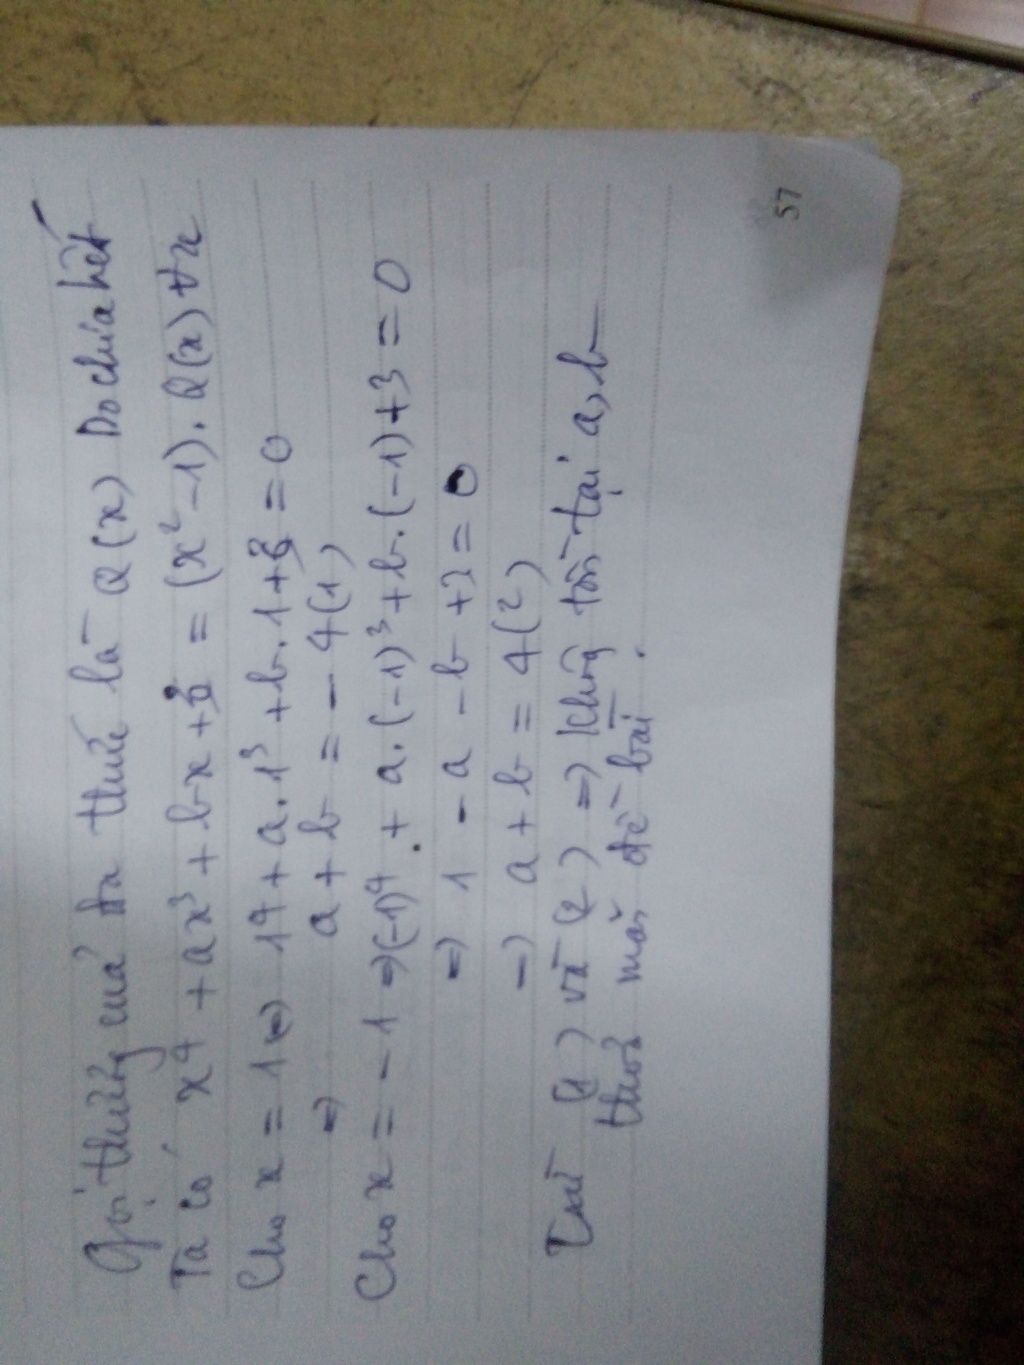 Gọi thương của đa thức là Q(x) Do chia hết
Ta có x⁴ + ax³ + bx + 3 = (x² - 1). Q(x) ∀x
Cho x = 1 => 1⁴ + a.1³ + b.1 + 3 = 0
=> a + b = - 4 (1)
Cho x = - 1 => (-1)⁴ + a.(-1)³ + b.(-1) + 3 = 0
=> 1 - a - b + 3 = 0
=> a + b = 4 (2)
Từ (1) và (2) => không tồn tại a, b
thoả mãn đề bài.
57